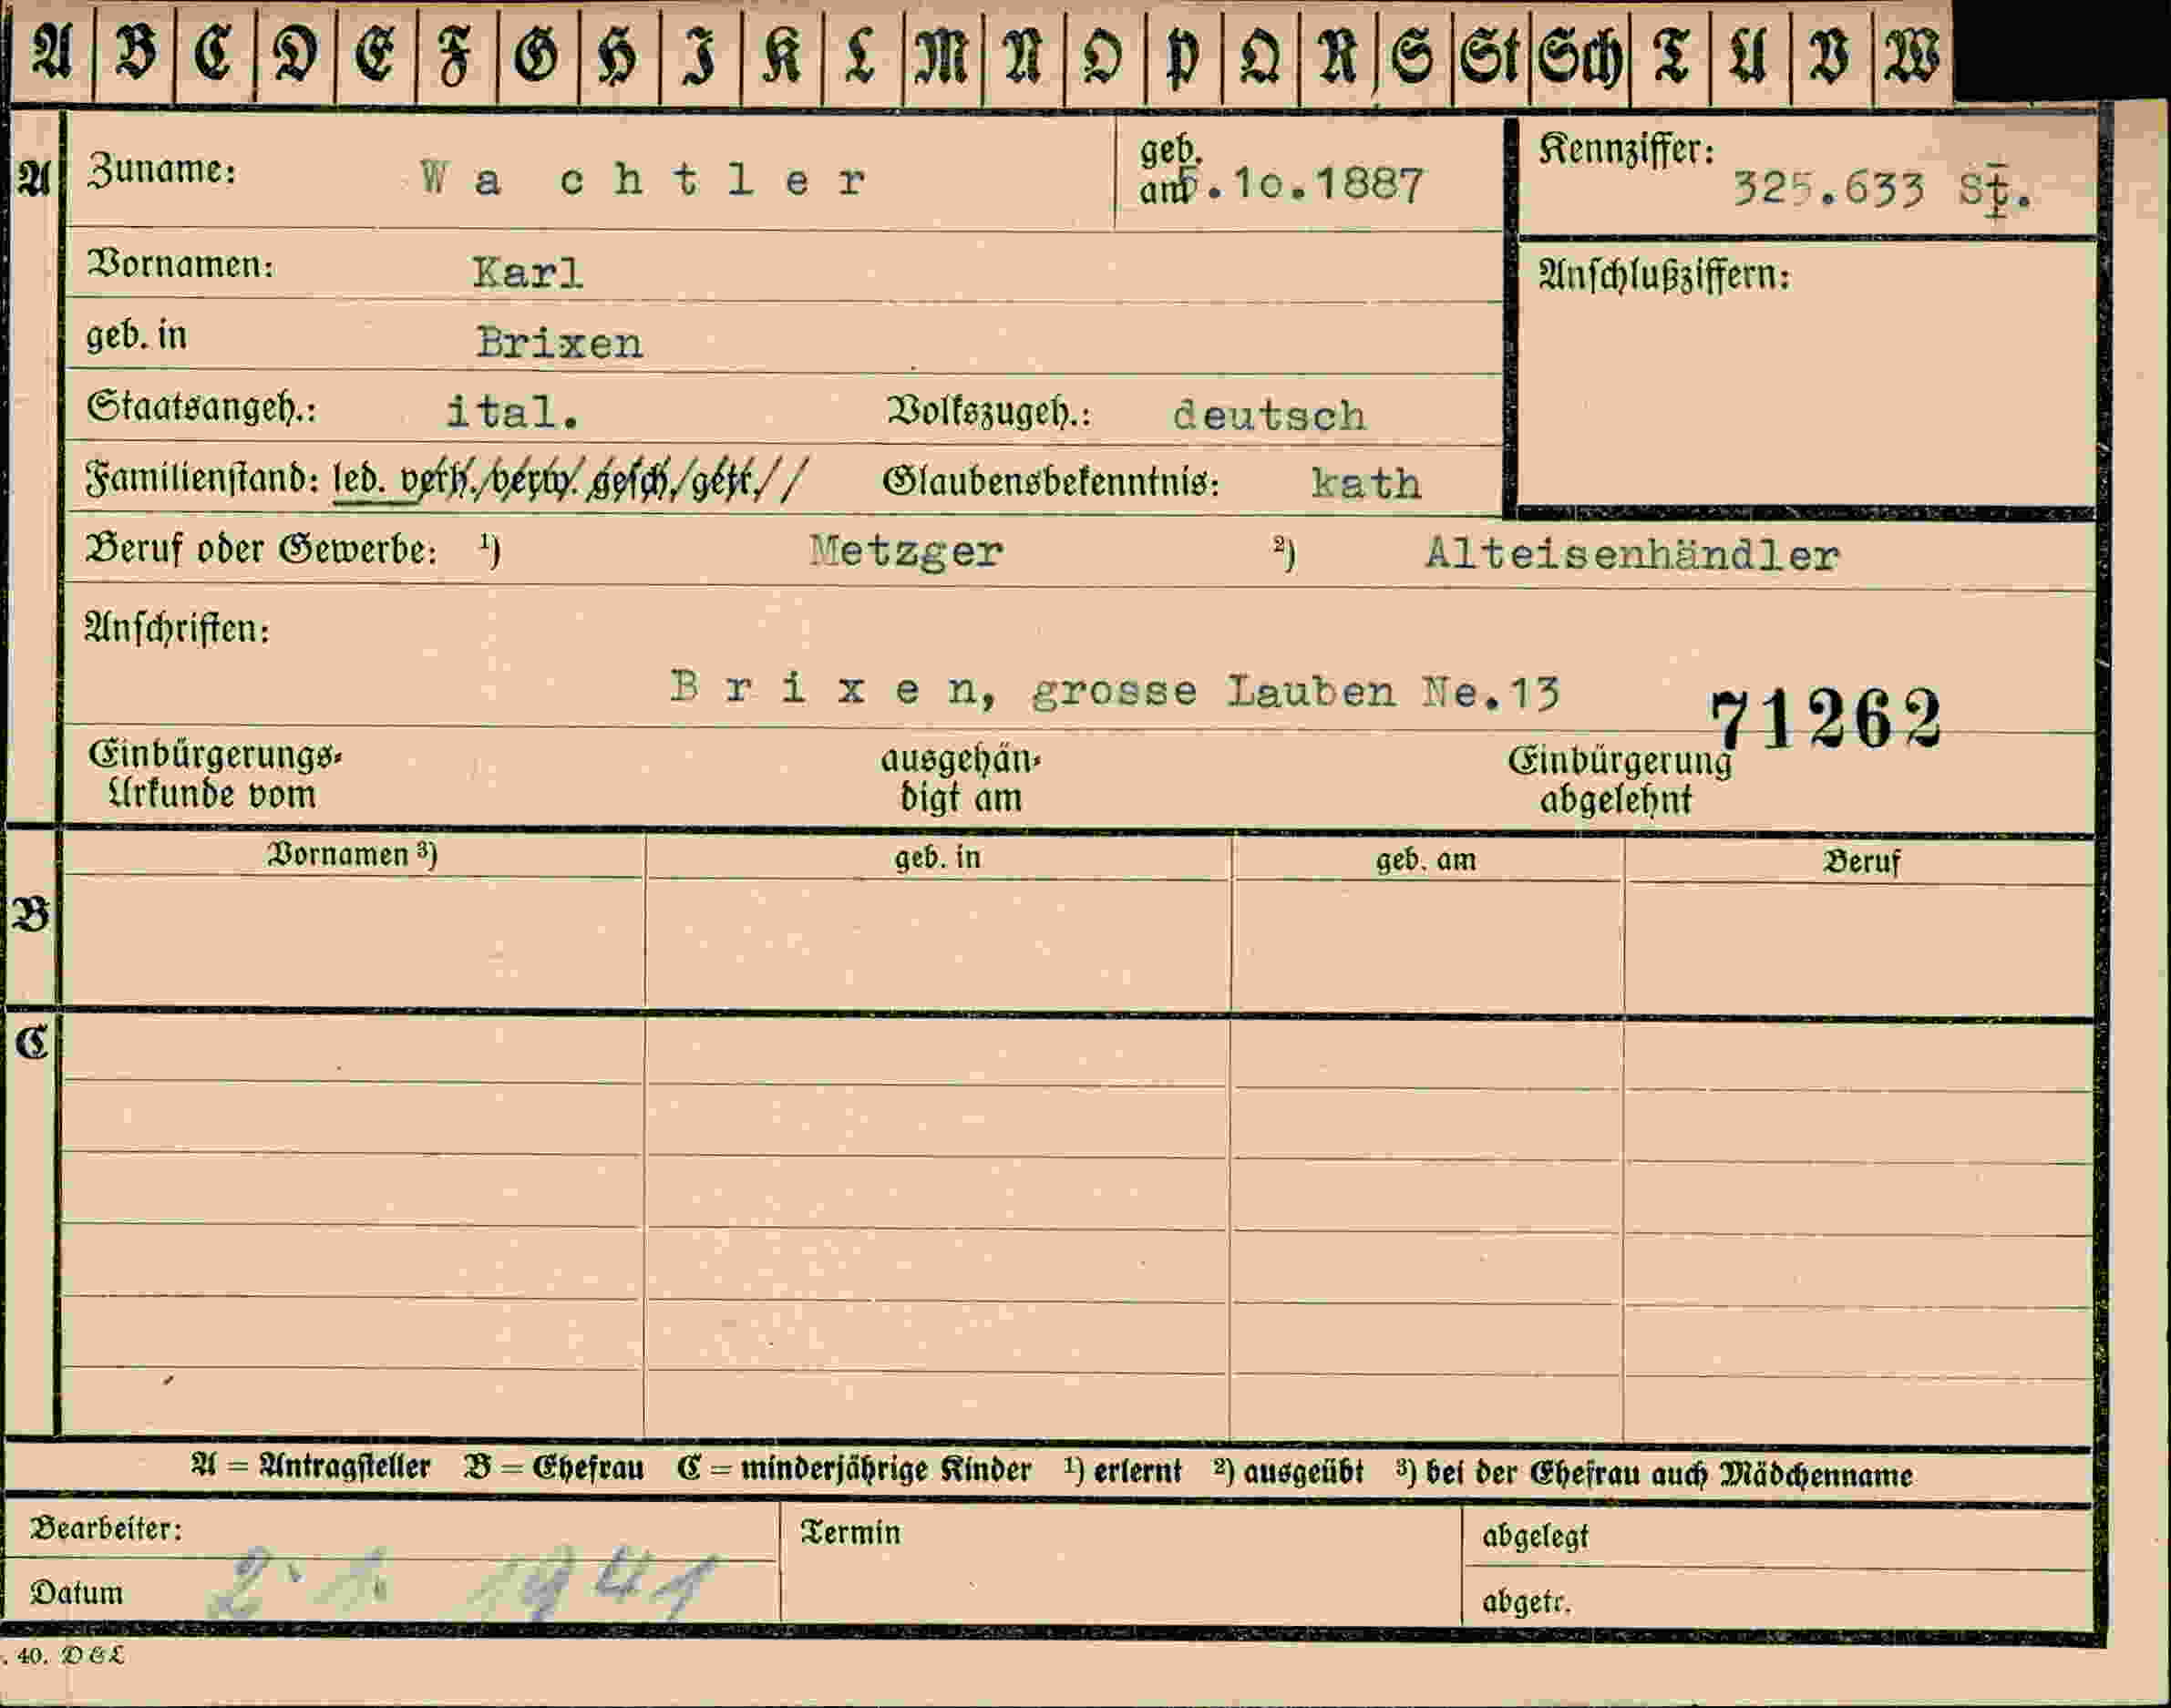 A B C D E F G H I K L M N O P Q R S St Sch T U V W
A Zuname: W a c h t l e r geb. am 5.10.1887 Kennziffer: 325.633 St.
Vornamen: Karl Anschlußziffern:
geb. in Brixen
Staatsangeh.: ital. Volkszugeh.: deutsch
Familienstand: led. verh. verw. gesch. getr. Glaubensbekenntnis: kath
Beruf oder Gewerbe: ¹) Metzger ²) Alteisenhändler
Anschriften:
B r i x e n, grosse Lauben Ne.13 71262
Einbürgerungs- ausgehän- Einbürgerung
Urkunde vom digt am abgelehnt
Vornamen ³) geb. in geb. am Beruf
B
C
A = Antragsteller B = Ehefrau C = minderjährige Kinder ¹) erlernt ²) ausgeübt ³) bei der Ehefrau auch Mädchenname
Bearbeiter: Termin abgelegt
Datum 1941 abgetr.
. 40. DGL